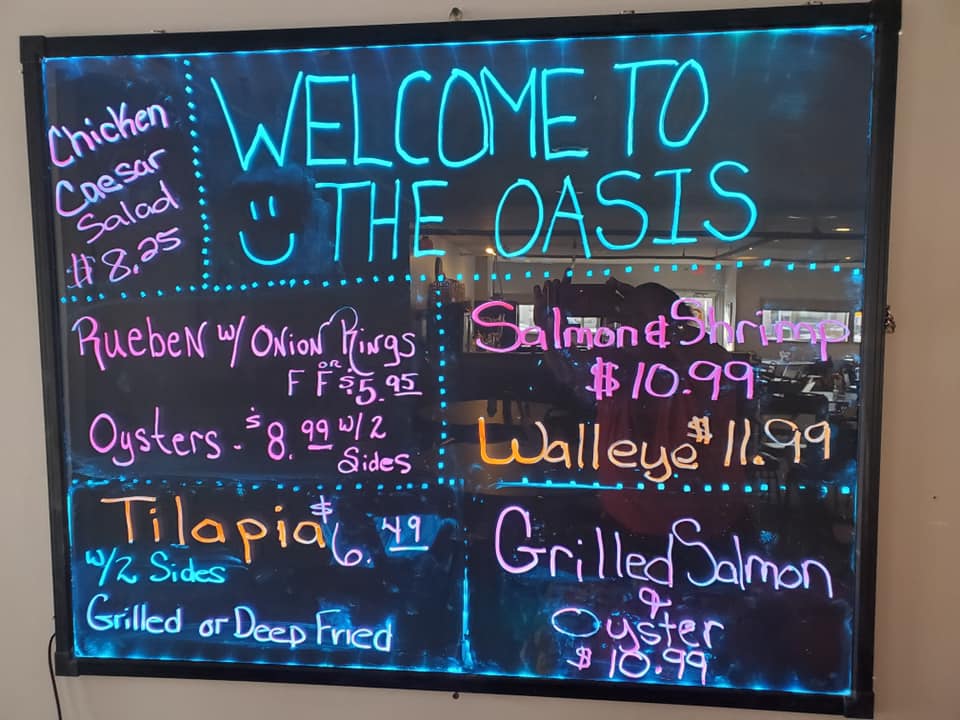 WELCOME TO
THE OASIS
Chicken
Caesar
Salad
$8.25
RuebeN w/ ONION Rings
OR
F F $5.95
Oysters - $8.99 w/2
Sides
Salmon & Shrimp
$10.99
Walleye $11.99
Tilapia $6.49
w/2 Sides
Grilled or Deep Fried
Grilled Salmon
&
Oyster
$10.99